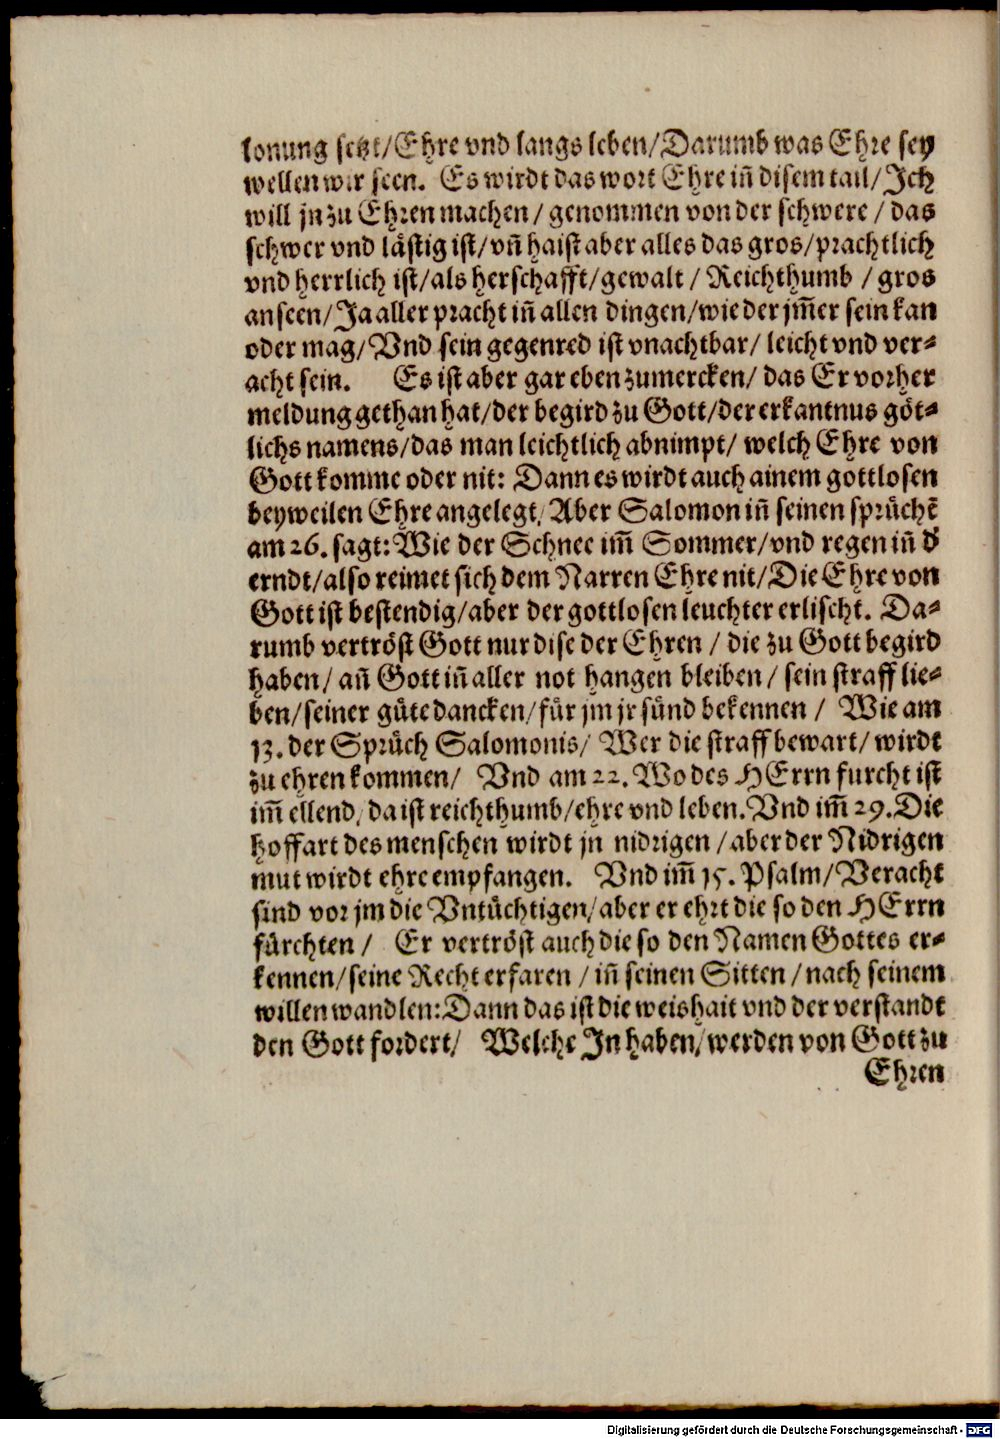 lonung setzt/Ehre vnd langs leben/Darumb was Ehre sey
wellen wir seen. Es wirdt das wort Ehre iñ disem tail/Jch
will jn zu Ehren machen/ genommen von der schwere / das
schwer vnd lästig ist/vñ haist aber alles das gros/prachtlich
vnd herrlich ist/als herschafft/gewalt / Reichthumb / gros
anseen/Ja aller pracht iñ allen dingen/wie der jm̃er sein kan
oder mag/Vnd sein gegenred ist vnachtbar/ leicht vnd ver⸗
acht sein. Es ist aber gar eben zumercken/ das Er vorher
meldung gethan hat/der begird zu Gott/der erkantnus göt⸗
lichs namens/das man leichtlich abnimpt/ welch Ehre von
Gott komme oder nit: Dann es wirdt auch ainem gottlosen
beyweilen Ehre angelegt/ Aber Salomon iñ seinen sprüchẽ
am 26. sagt: Wie der Schnee im̃ Sommer/vnd regen iñ d'
erndt/also reimet sich dem Narren Ehre nit/Die Ehre von
Gott ist bestendig/aber der gottlosen leuchter erlischt. Da⸗
rumb vertröst Gott nur dise der Ehren / die zu Gott begird
haben/ añ Gott iñ aller not hangen bleiben/ sein straff lie⸗
ben/seiner güte dancken/für jm jr sünd bekennen / Wie am
13. der Sprüch Salomonis/ Wer die straff bewart/ wirdt
zu ehren kommen/ Vnd am 22. Wo des HErrn furcht ist
im̃ ellend/ da ist reichthumb/ehre vnd leben. Vnd im̃ 29. Die
hoffart des menschen wirdt jn nidrigen /aber der Nidrigen
mut wirdt ehre empfangen. Vnd im̃ 15. Psalm/Veracht
sind vor jm die Vntüchtigen/aber er ehrt die so den HErrn
fürchten / Er vertröst auch die so den Namen Gottes er⸗
kennen/seine Recht erfaren /iñ seinen Sitten /nach seinem
willen wandlen: Dann das ist die weishait vnd der verstandt
den Gott fordert/ Welche Jn haben/werden von Gott zu
Ehren
Digitalisierung gefördert durch die Deutsche Forschungsgemeinschaft - DFG